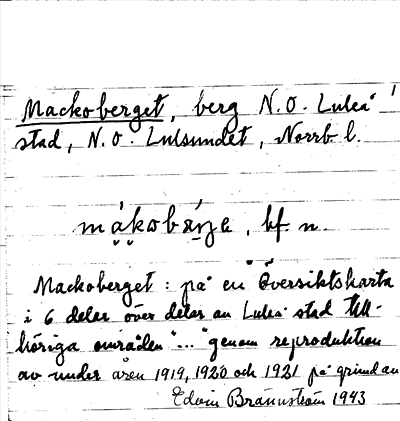 Mackoberget, berg N.O. Luleå
stad, N.O. Lulsundet, Norrb. l.
mákobárje, bf n.
Mackoberget: på en "Översiktskarta
i 6 delar över delar av Luleå stad till-
höriga områden "..." genom reproduktion
av under åren 1919, 1920 och 1921 på grund av
Edvin Brännström 1943